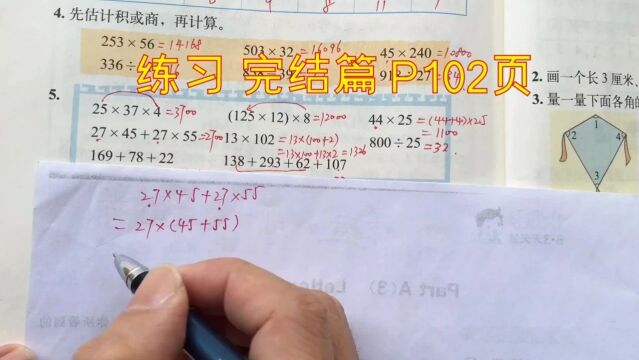 4. 先估计积或商，再计算。
253×56=14168 503×32=16096 45×240=10800
336÷
练习 完结篇 P102页
5.
25×37×4=3700 (125×12)×8=12000 44×25=(44+4)×25
=1100
27×45+27×55=2700 13×102=13×(100+2) 800÷25=32
=13×100+13×2=1326
169+78+22 138+293+62+107
27×45+27×55
=27×(45+55)
2. 画一个长3厘米、
3. 量一量下面各角
1
2
4
3
Part A(3)